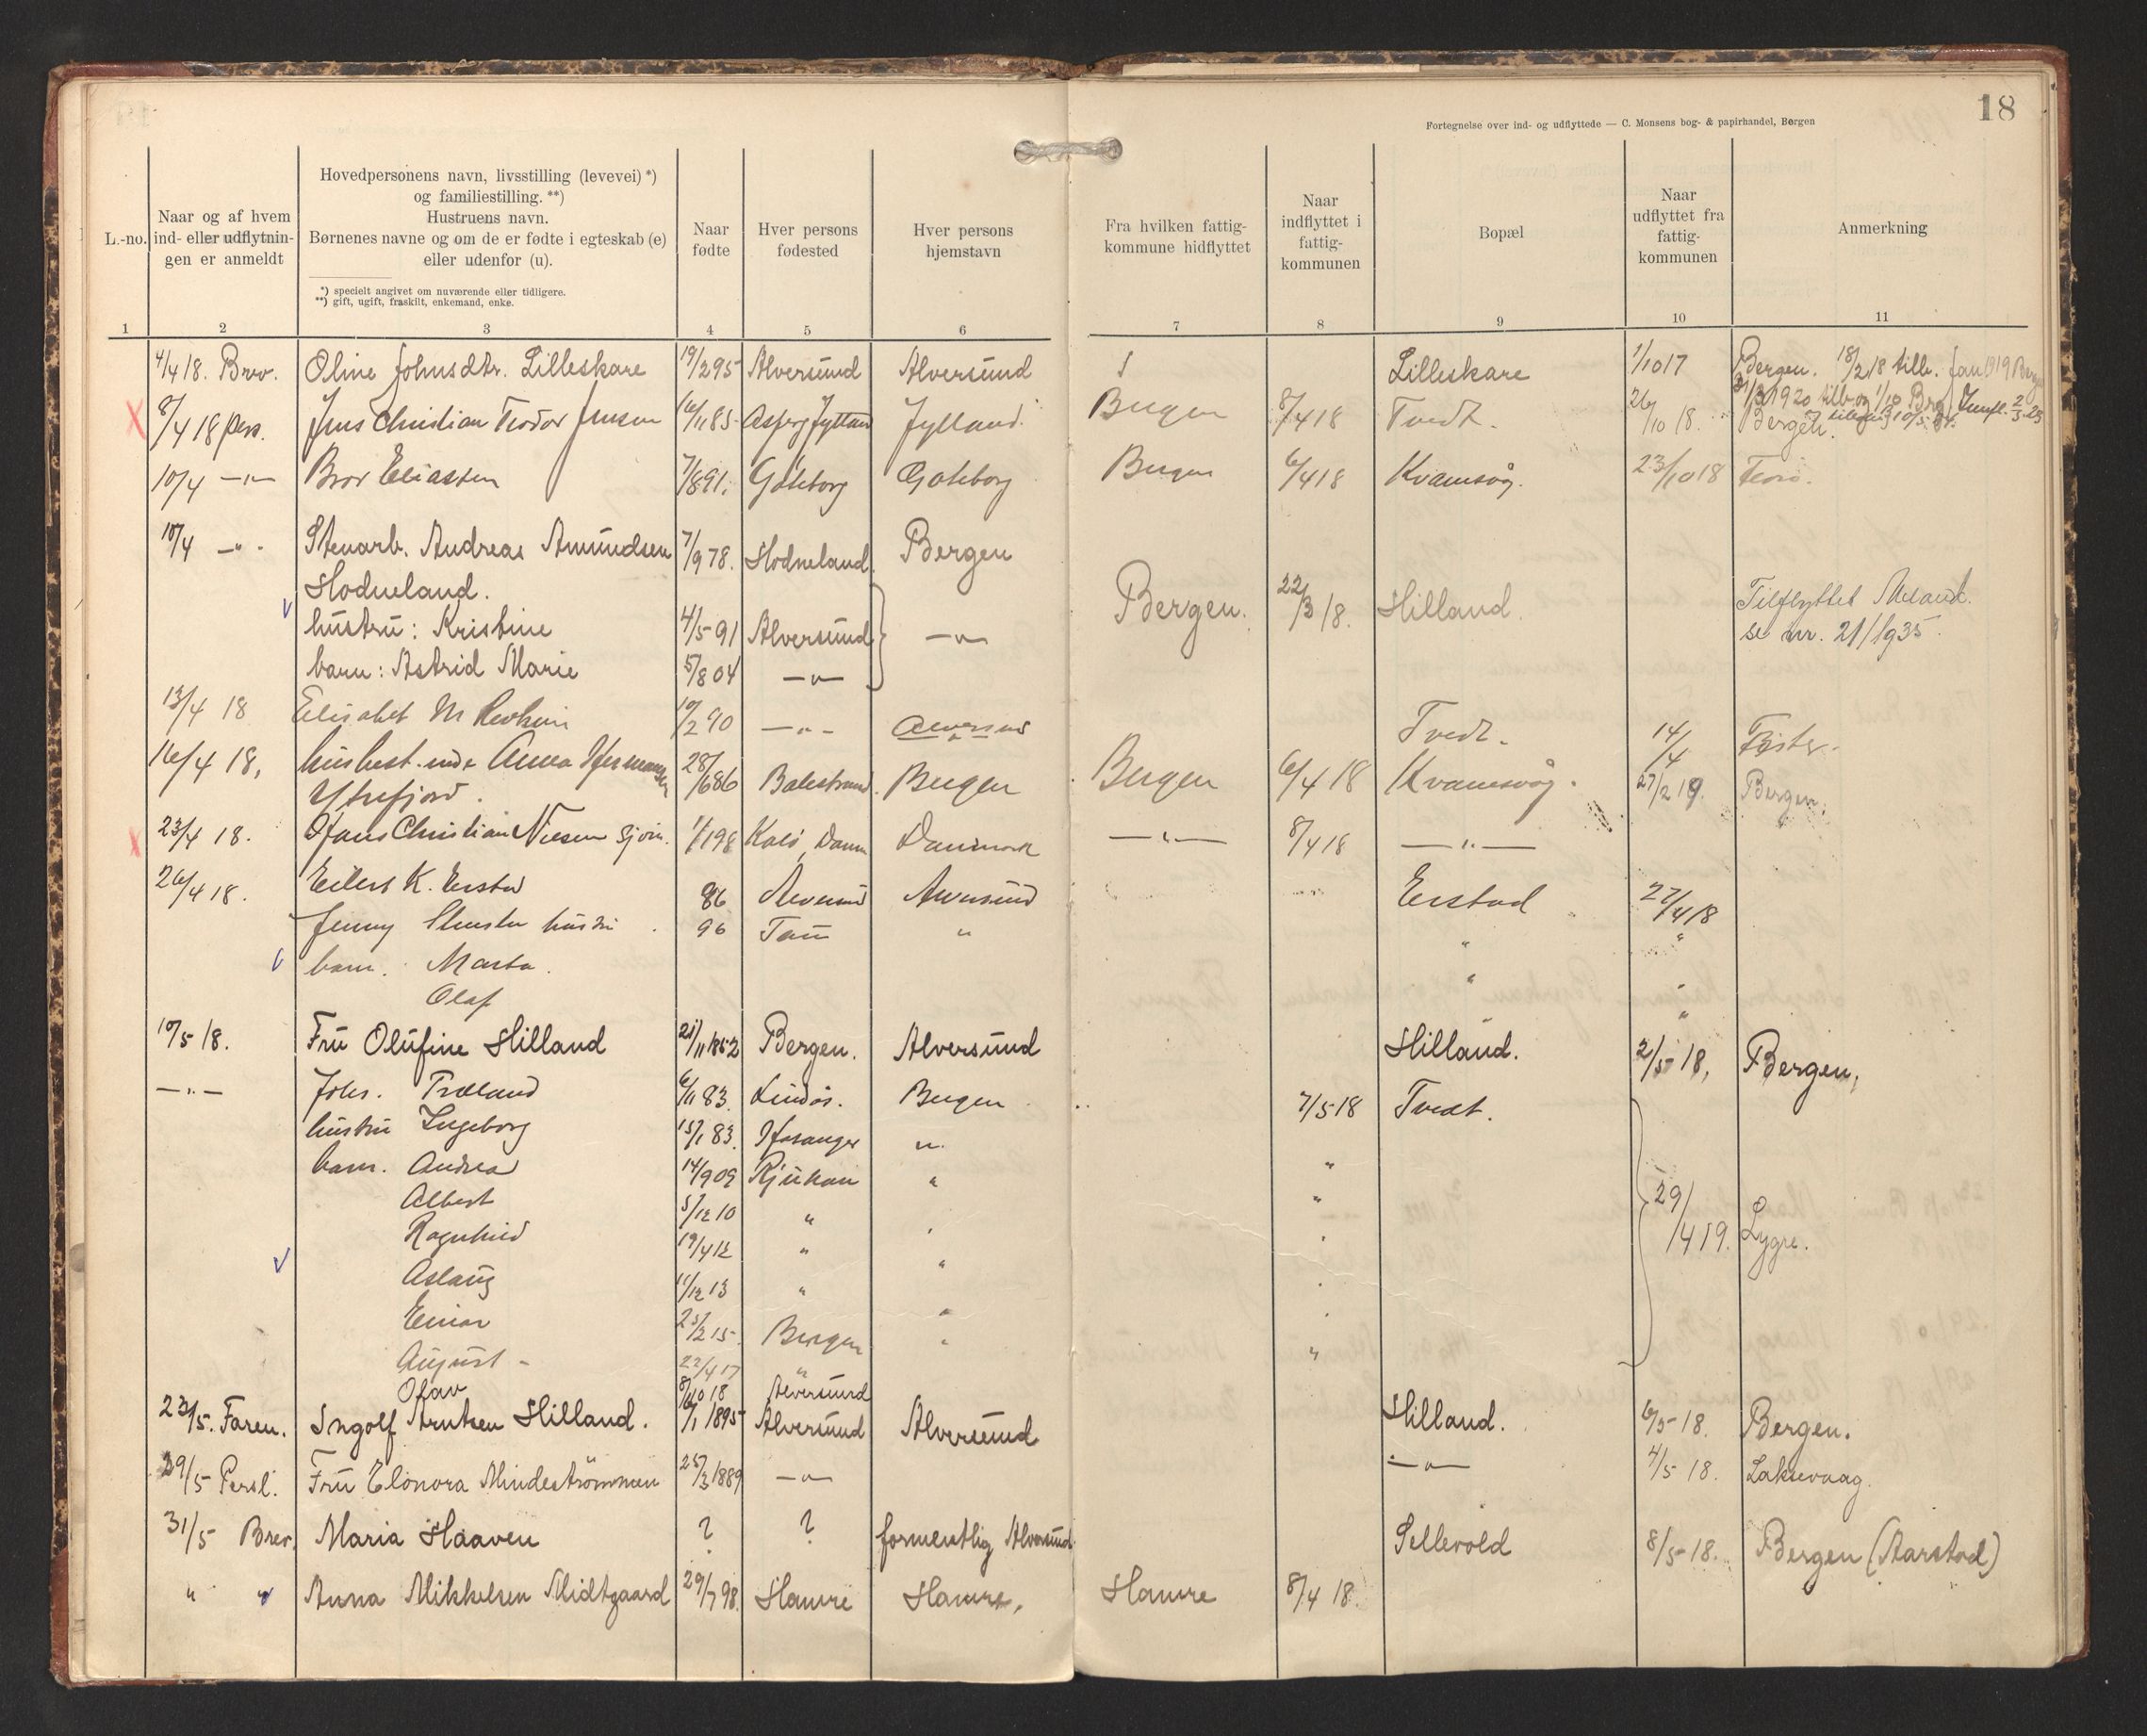 18
Fortegnelse over ind- og udflyttede — C. Monsens bog- & papirhandel, Bergen
L.-no.
Naar og af hvem
ind- eller udflytnin-
gen er anmeldt
Hovedpersonens navn, livsstilling (levevei) *)
og familiestilling. **)
Hustruens navn.
Børnenes navne og om de er fødte i egteskab (e)
eller udenfor (u).
*) specielt angivet om nuværende eller tidligere.
**) gift, ugift, fraskilt, enkemand, enke.
Naar
fødte
Hver persons
fødested
Hver persons
hjemstavn
Fra hvilken fattig-
kommune hidflyttet
Naar
indflyttet i
fattig-
kommunen
Bopæl
Naar
udflyttet fra
fattig-
kommunen
Anmerkning
1 2 3 4 5 6 7 8 9 10 11
4/4 18. Brev. Oline Johnsdtr. Lilleskare 19/2 95 Alversund Alversund Lilleskare 1/10 17 Bergen. 18/2 18 tilb.
X 8/4 18 pers. Jens Christian Teodor Jensen 16/11 85 Asperg Jylland Jylland. Bergen 8/4 18 Tvedt. 26/10 18. Bergen.
10/4 —"— Bror Eliassen 7/8 91. Göteborg Goteborg Bergen 6/4 18 Kvamsvåg. 23/10 18 Florø.
10/4 —"— Stenarb. Andreas Amundsen 7/9 78. Hodneland Bergen
Hodneland. Bergen. 22/3 18. Hilland. Tilflyttet Meland.
hustru: Kristine 4/5 91 Alversund —"— se nr. 21/1935.
barn: Astrid Marie 5/8 04 —"—
13/4 18 Elisabet M 10/2 90 —"— Alversund Tvedt. 14/4
16/4 18, husbest. Anna Hermansen 28/6 86 Balestrand. Bergen Bergen 6/4 18 Kvamsvåg. 27/2 19. Bergen.
Ytrefjord.
X 23/4 18. Hans Christian Nielsen 1/1 98 Danmark —"— 8/4 18 —"—
26/4 18. Eilert K. Eistad 86 Alversund Alversund Eistad 27/4 18
Jenny hustru 96 " " "
barn. Marta. " "
Olaf "
10/5 18. Fru Olufine Hilland 21/11 1852 Bergen. Alversund Hilland. 2/5 18, Bergen,
—"— Johs. Træland 6/11 83. Lindås. Bergen 7/5 18 Tvedt.
hustru Ingeborg 15/1 83. Hosanger "
barn. Andrea 14/9 09 Rjukan " "
Albert 5/12 10 " " 29/4 19. Lygre.
Ragnhild 19/4 12 " "
Aslaug 11/12 13 " "
Einar 23/2 15. Bergen "
August - 22/4 17 " "
Olav 8/10 18 Alversund
23/5. Faren. Ingolf Arntsen Hilland. 6/1 1895 Alversund Alversund Hilland. 6/5 18. Bergen.
29/5 Persl. Fru Elonora Mindeströmmen 25/3 1889 —"— —"— 4/5 18. Laksevaag.
31/5 Brev. Maria Haaven ? ? formentlig Alversund Sellevold 8/5 18. Bergen (Aarstad)
" " Anna Mikkelsen Midtgaard 29/7 98. Hamre Hamre. Hamre 8/4 18.